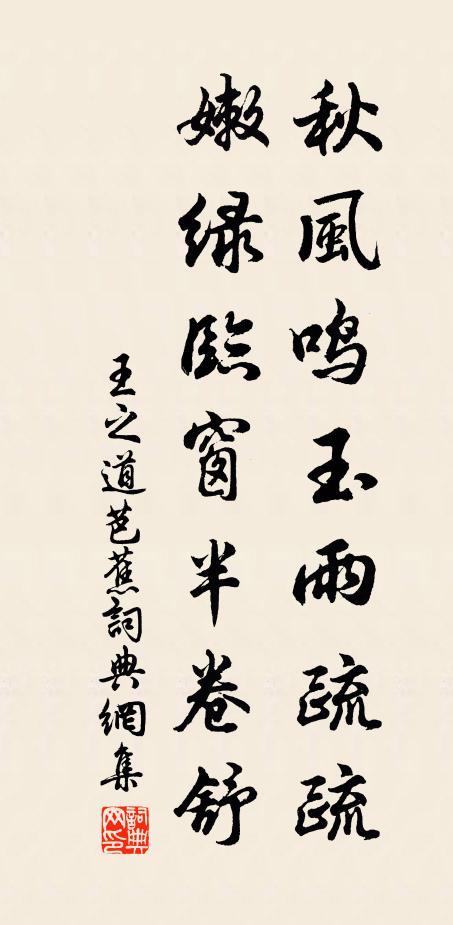 秋風鸣玉雨疏疏
嫩绿臨窗半卷舒
王之道芭蕉詞典網集
詞典网印